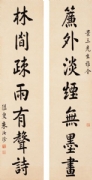 簾外淡煙無墨畫
先生
林間疎雨有聲詩